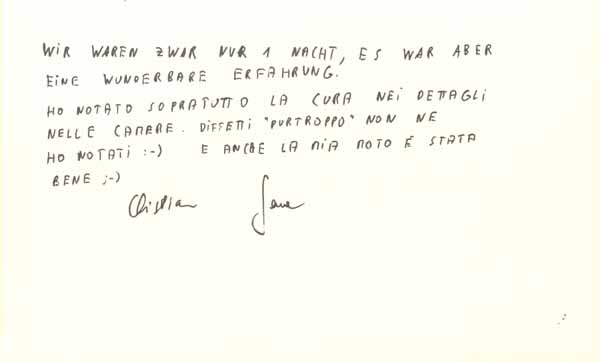 WIR WAREN ZWAR NUR 1 NACHT, ES WAR ABER
EINE WUNDERBARE ERFAHRUNG.
HO NOTATO SOPRATUTTO LA CURA NEI DETTAGLI
NELLE CAMERE. DIFFETTI "PURTROPPO" NON NE
HO NOTATI :-) E ANCHE LA MIA MOTO È STATA
BENE ;-)
Christian